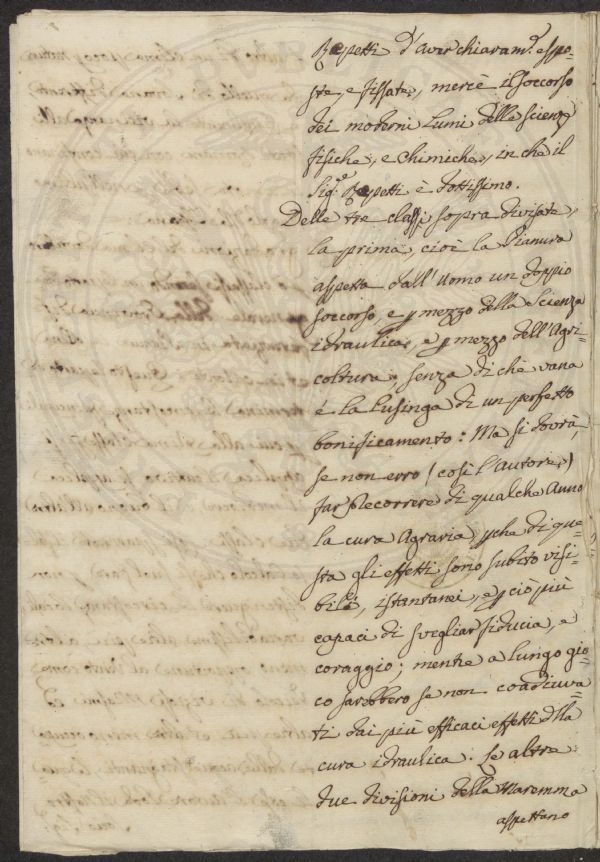 Repetti d'aver chiaram.e espo=
ste, e fissate, mercè il soccorso
dei moderni lumi delle scienze
fisiche, e chimiche, in che il
Sig.e Repetti è dottissimo.
Delle tre classi sopra divisate,
la prima, cioè la Pianura
aspetta dall'Uomo un doppio
soccorso, e p mezzo della Scienza
idraulica, e p mezzo dell'Agri=
coltura, senza di chè vana
è la lusinga di un perfetto
bonificamento: Ma si dovrà,
se non erro (così l'Autore)
far precorrere di qualche Anno
la cura Agraria, pche di que=
sta gli effetti sono subito visi=
bili, istantanei, e pciò più
capaci di svegliar fiducia, e
coraggio; mentre a lungo gio=
co sarebbero se non coadiuva=
ti dai più efficaci effetti dlla
cura idraulica. Le altre
due divisioni della Maremma
aspettano